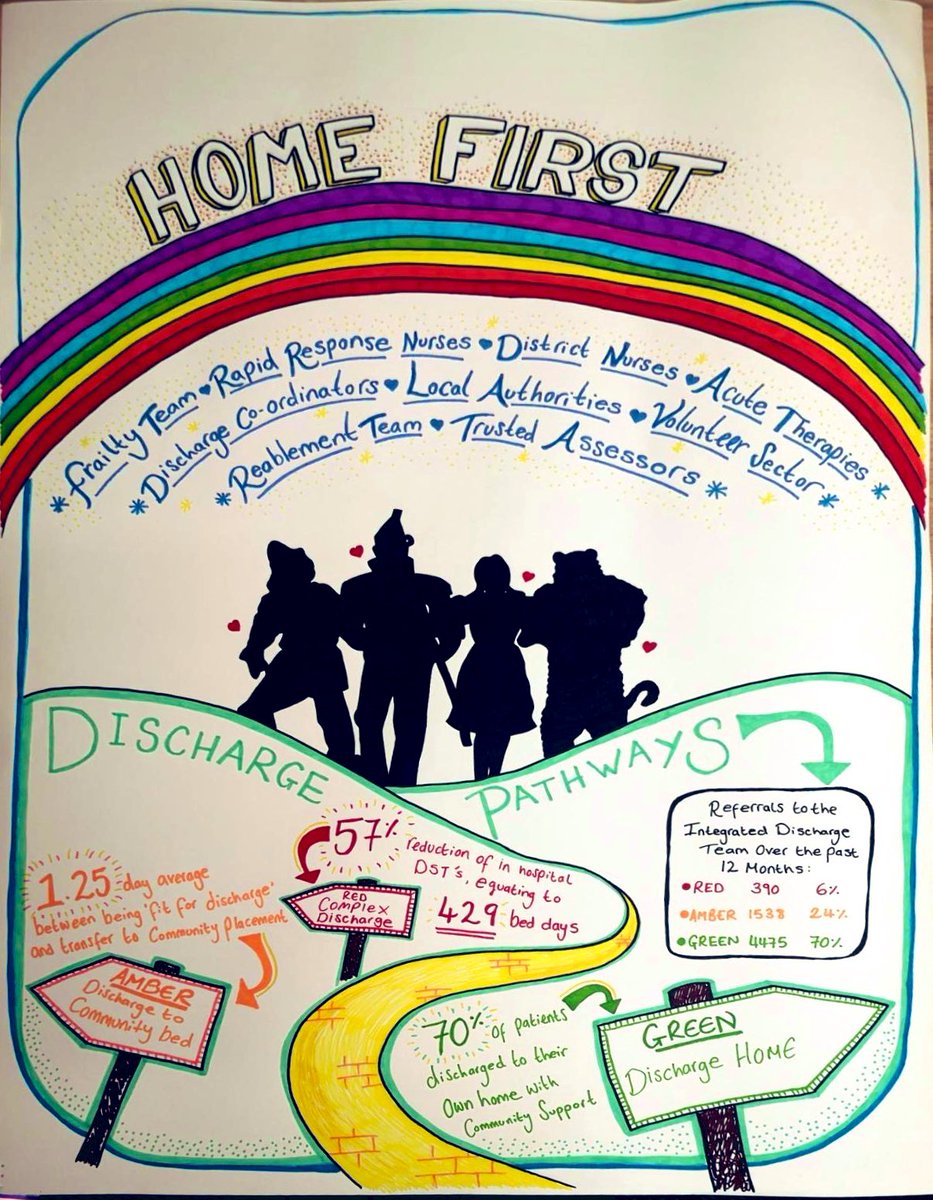 HOME FIRST
* Frailty Team ♥ Rapid Response Nurses ♥ District Nurses ♥ Acute Therapies *
* Discharge Co-ordinators ♥ Local Authorities ♥ Volunteer Sector *
* Reablement Team ♥ Trusted Assessors *
DISCHARGE PATHWAYS
Referrals to the
Integrated Discharge
Team Over the past
12 Months:
• RED 390 6%
• AMBER 1538 24%
• GREEN 4475 70%
57% reduction of in hospital
DST's, equating to
429 bed days
RED
Complex
Discharge
1.25 day average
between being 'fit for discharge'
and transfer to Community Placement
AMBER
Discharge to
Community bed
70% of patients
discharged to their
Own home with
Community Support
GREEN
Discharge HOME